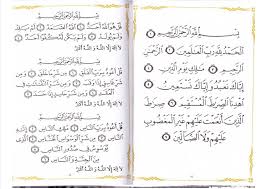 بِسْمِ اللهِ الرَّحْمٰنِ الرَّحِيمِ
اَلْحَمْدُ لِلّٰهِ رَبِّ الْعَالَمِينَ اَلرَّحْمٰنِ
الرَّحِيمِ مَالِكِ يَوْمِ الدِّينِ
إِيَّاكَ نَعْبُدُ وَإِيَّاكَ نَسْتَعِينُ
اِهْدِنَا الصِّرَاطَ الْمُسْتَقِيمَ صِرَاطَ
الَّذِينَ أَنْعَمْتَ عَلَيْهِمْ غَيْرِ الْمَغْضُوبِ
عَلَيْهِمْ وَلَا الضَّالِّينَ
بِسْمِ اللهِ الرَّحْمٰنِ الرَّحِيمِ
قُلْ هُوَ اللهُ أَحَدٌ اَللهُ الصَّمَدُ لَمْ يَلِدْ
وَلَمْ يُولَدْ وَلَمْ يَكُنْ لَهُ كُفُوًا أَحَدٌ
لَا إِلٰهَ إِلَّا اللهُ وَاللهُ أَكْبَرُ
بِسْمِ اللهِ الرَّحْمٰنِ الرَّحِيمِ
قُلْ أَعُوذُ بِرَبِّ الْفَلَقِ مِنْ شَرِّ مَا خَلَقَ وَمِنْ شَرِّ
غَاسِقٍ إِذَا وَقَبَ وَمِنْ شَرِّ النَّفَّاثَاتِ فِي الْعُقَدِ
وَمِنْ شَرِّ حَاسِدٍ إِذَا حَسَدَ
لَا إِلٰهَ إِلَّا اللهُ وَاللهُ أَكْبَرُ
بِسْمِ اللهِ الرَّحْمٰنِ الرَّحِيمِ
قُلْ أَعُوذُ بِرَبِّ النَّاسِ مَلِكِ النَّاسِ إِلٰهِ
النَّاسِ مِنْ شَرِّ الْوَسْوَاسِ الْخَنَّاسِ الَّذِي
يُوَسْوِسُ فِي صُدُورِ النَّاسِ
مِنَ الْجِنَّةِ وَالنَّاسِ
لَا إِلٰهَ إِلَّا اللهُ وَاللهُ أَكْبَرُ